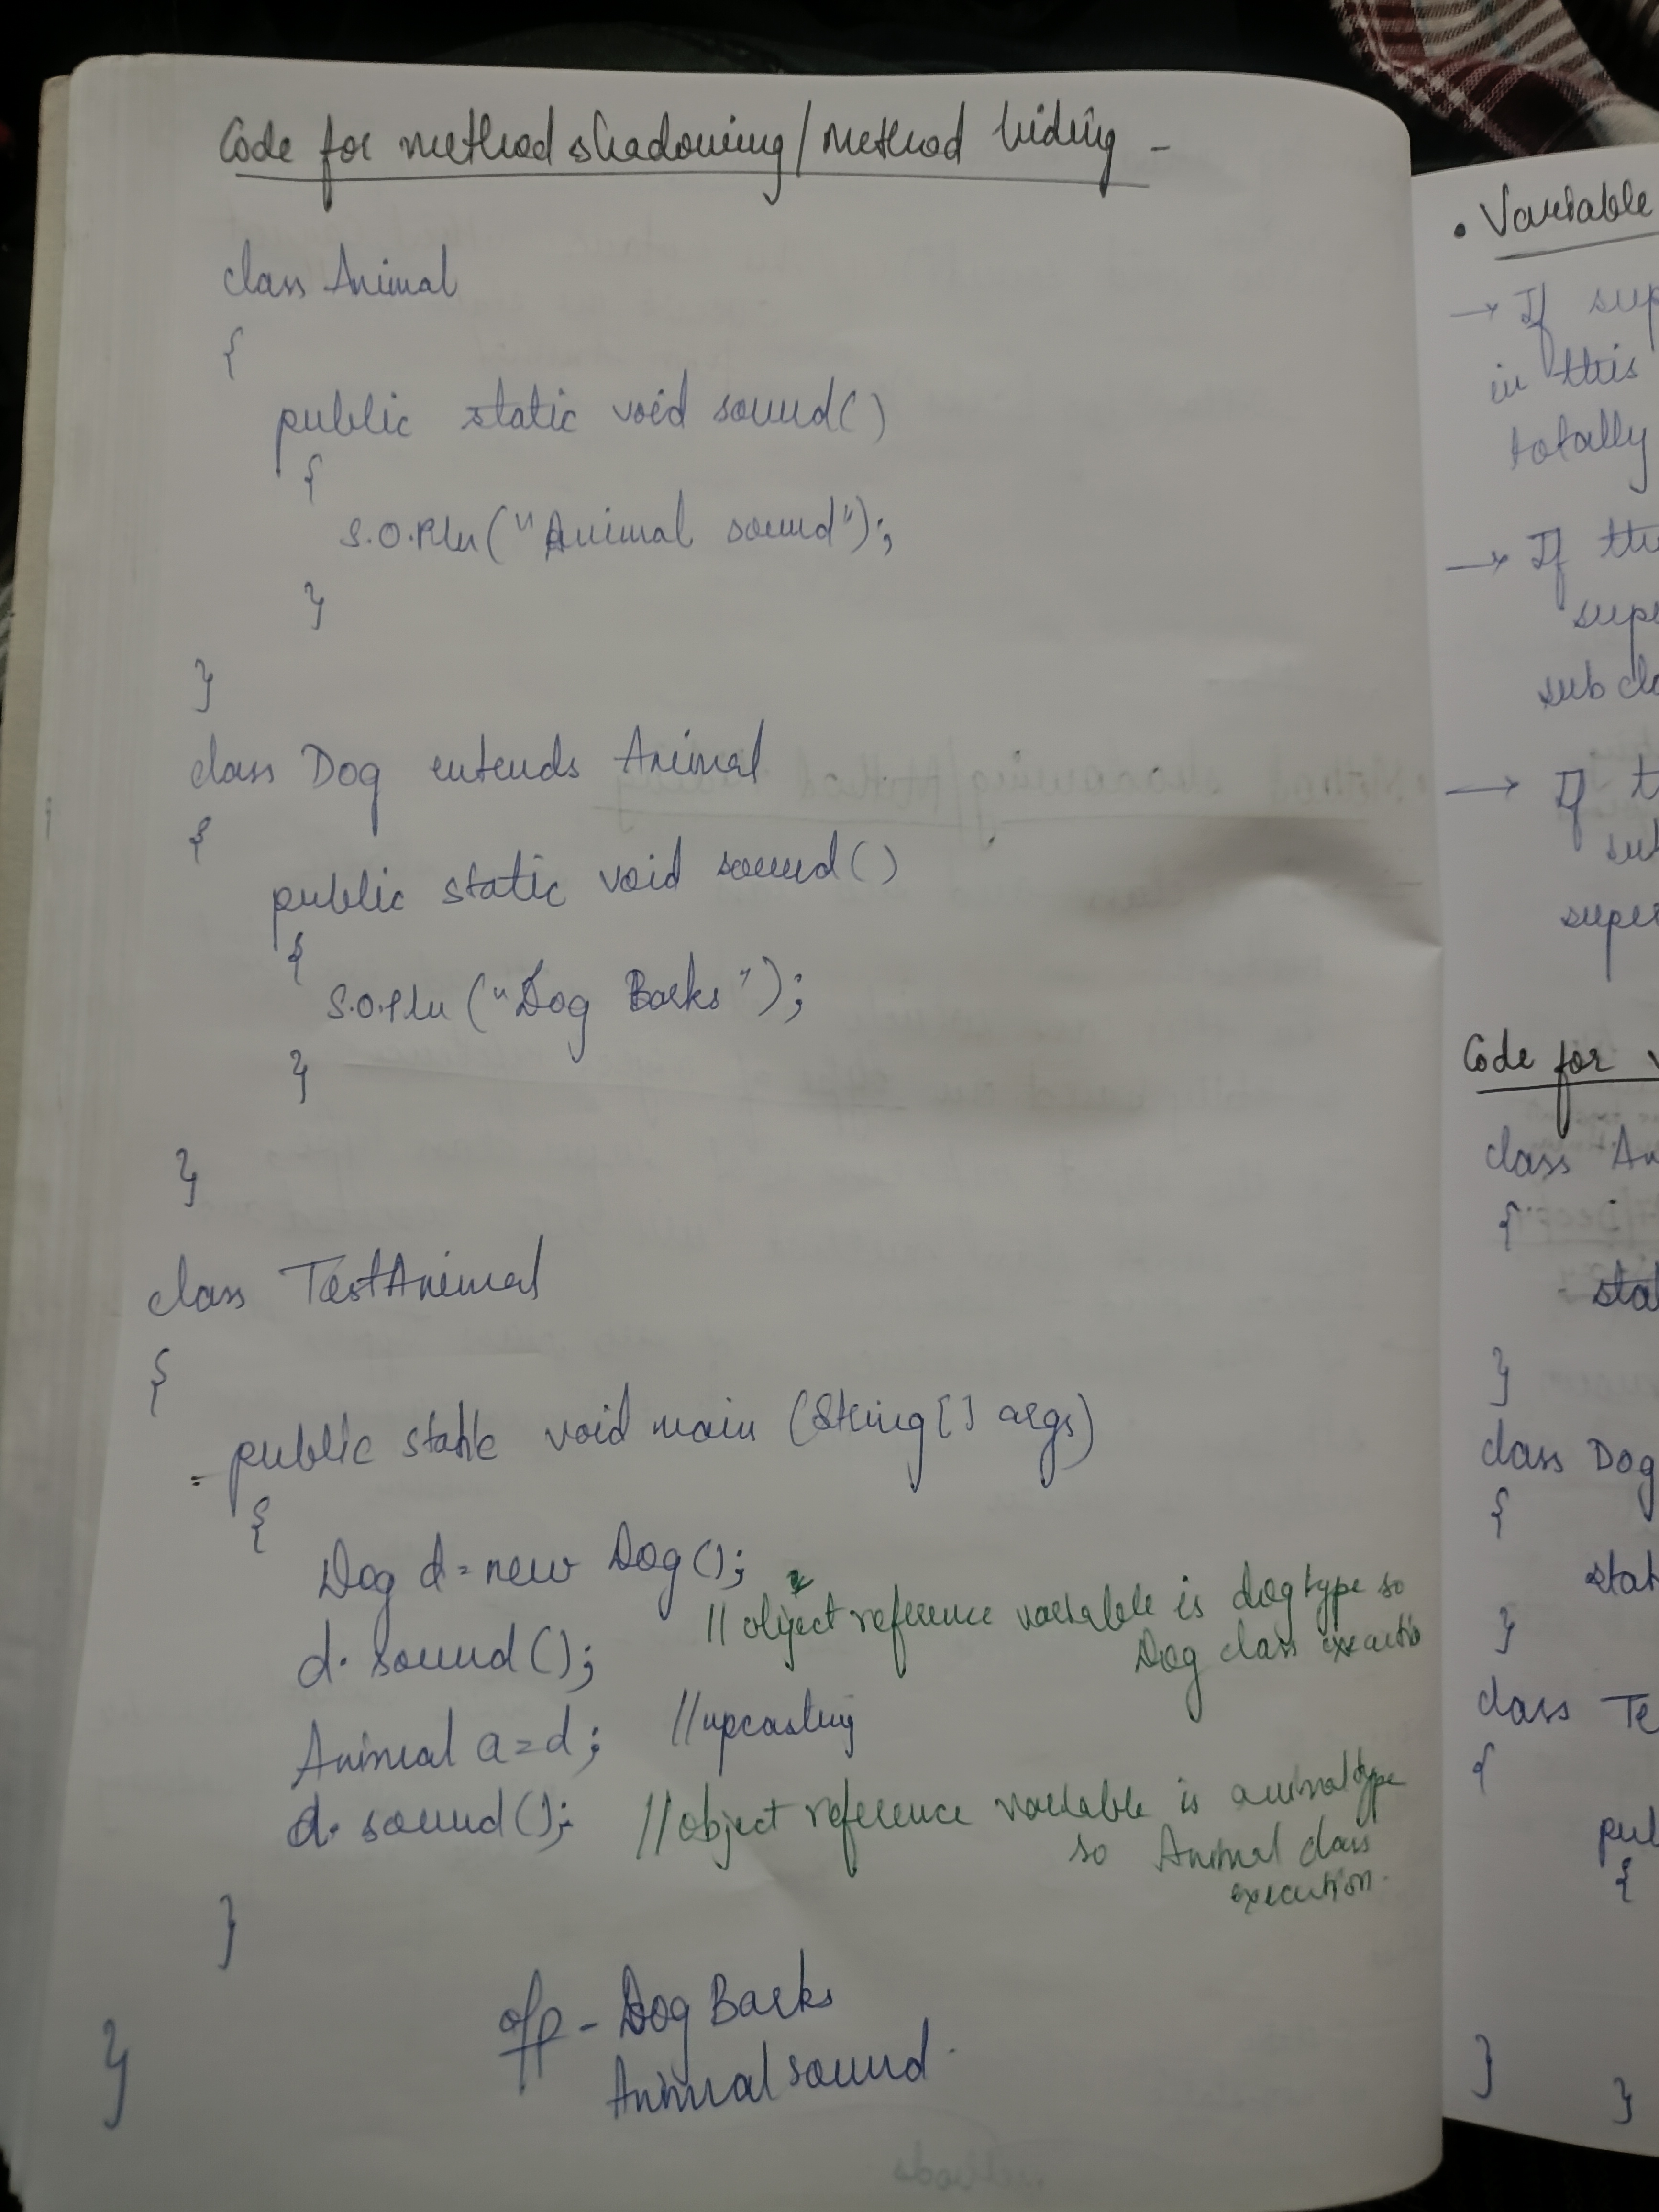 Code for method shadowing/method hiding -
class Animal
{
public static void sound()
{
S.O.Pln("Animal sound");
}
}
class Dog extends Animal
{
public static void sound()
{
S.O.Pln("Dog Barks");
}
}
class TestAnimal
{
public static void main (String[] args)
{
Dog d=new Dog();
d.sound(); //object reference variable is dog type so
Dog class executio
Animal a=d; //upcasting
d.sound(); //object reference variable is animal type
so Animal class
execution.
}
o/p - Dog Barks
Animal sound.
}
• Variable
→ If sup
in this
totally
→ If the
supe
sub cla
→ If t
sub
super
Code for v
class An
{
stat
}
class Dog
{
stat
}
class Te
{
pul
{
}
}